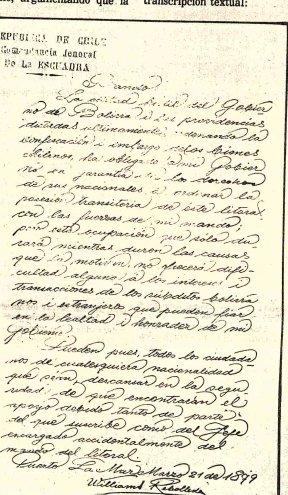 argumentando que la transcripción textual:
REPUBLICA DE CHILE
Comandancia Jeneral
De La ESCUADRA
Bando
La actitud hostil del Gobier
no de Bolivia i sus providencias
dictadas ultimamente ordenando la
confiscacion i embargo de los bienes
chilenos, ha obligado a mi Gobier
no en garantia a los derechos
de sus nacionales a ordenar la
posesion transitoria de este litoral
con las fuerzas de mi mando,
pero esta ocupacion que solo du
rará mientras duren las causas
que la motivan, no ofrecerá difi
cultad alguna a los intereses i
transacciones de los subditos bolivia
nos i estranjeros que pueden fiar
en la lealtad i honradez de mi
Gobierno.
Pueden pues, todos los ciudada
nos de cualesquiera nacionalidad
que sean, descansar en la segu
ridad de que encontrarán el
apoyo debido tanto de parte
del que suscribe como del Jefe
encargado accidentalmente del
mando del litoral.
Puerto La Mar Marzo 21 de 1879
Williams Rebolledo